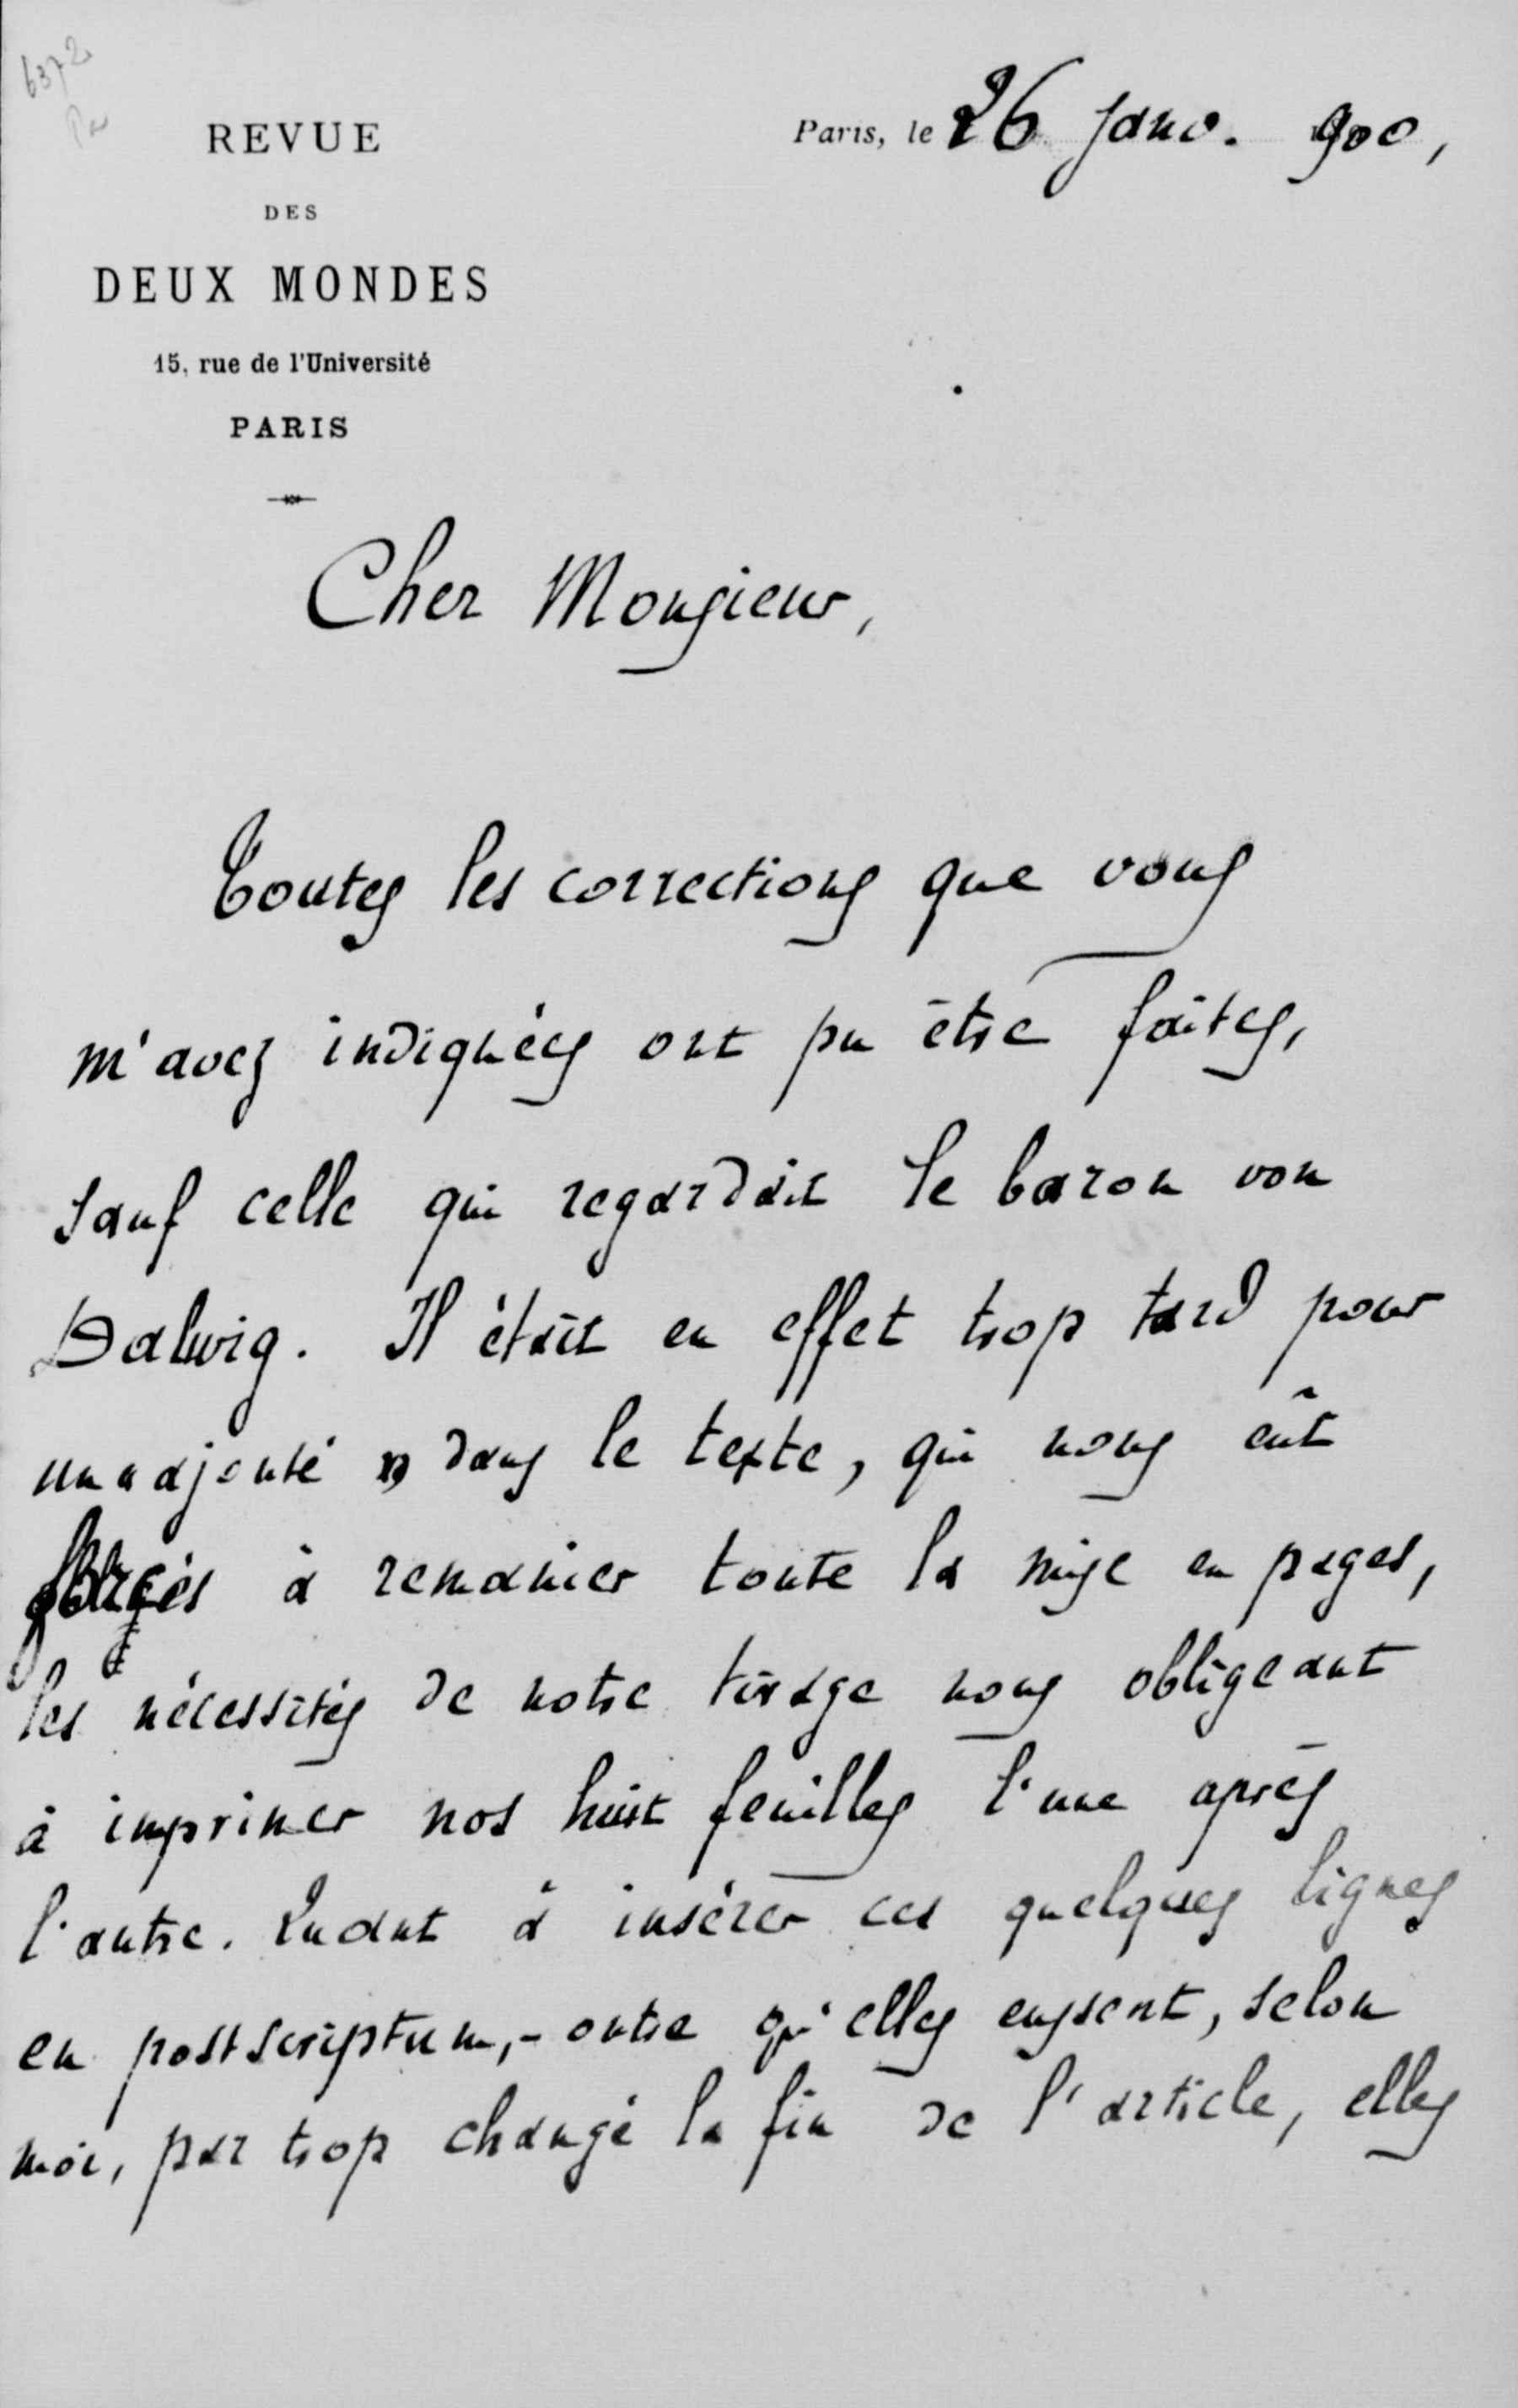 6372
REVUE
DES
DEUX MONDES
15, rue de l'Université
PARIS
Paris, le 26 janv. 900,
Cher Monsieur,
Toutes les corrections que vous
m'avez indiquées ont pu être faites,
sauf celle qui regardait le baron von
Dalwig. Il était en effet trop tard pour
un adjouté dans le texte, qui nous eût
forcés à remanier toute la mise en pages,
les nécessités de notre tirage nous obligeant
à imprimer nos huit feuilles l'une après
l'autre. Quant à insérer ces quelques lignes
en postscriptum, - outre qu'elles eussent, selon
moi, par trop changé la fin de l'article, elles